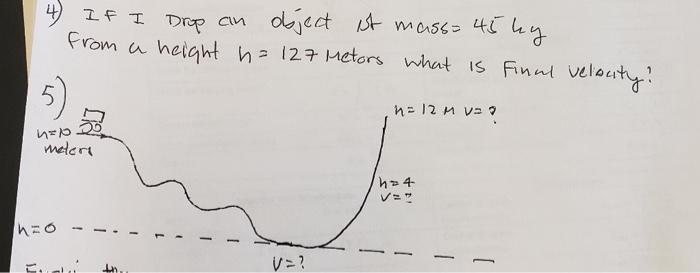 4) IF I Drop an object its mass= 45 kg
From a height h= 127 Meters what is Final velocity?
5)
h=10
meters
h= 12 M v= ?
h=4
v=?
h=0
v=?